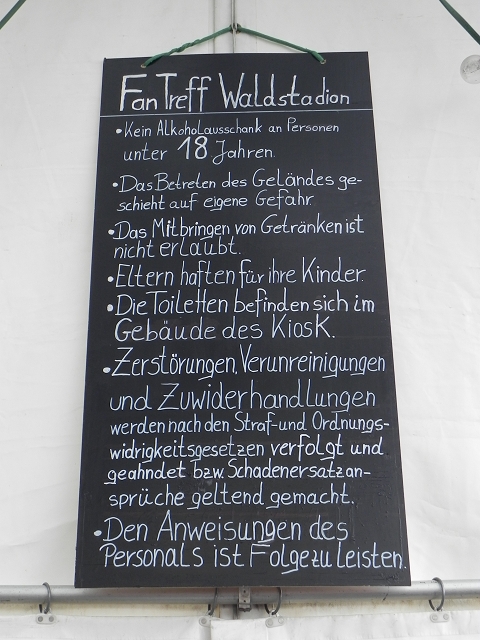 Fan Treff Waldstadion
• Kein Alkoholausschank an Personen
unter 18 Jahren.
• Das Betreten des Geländes ge-
schieht auf eigene Gefahr
• Das Mitbringen von Getränken ist
nicht erlaubt.
• Eltern haften für ihre Kinder.
• Die Toiletten befinden sich im
Gebäude des Kiosk.
• Zerstörungen, Verunreinigungen
und Zuwiderhandlungen
werden nach den Straf-und Ordnungs-
widrigkeitsgesetzen verfolgt und
geahndet bzw. Schadenersatzan-
sprüche geltend gemacht.
• Den Anweisungen des
Personals ist Folge zu leisten.